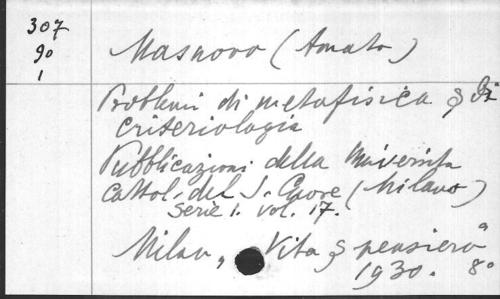 307
90
1
Masnovo (Amato)
Problemi di metafisica e di
criteriologia
Pubblicazioni della Università
cattol. del S. Cuore (Milano)
Serie 1. vol. 17.
Milan, Vita e pensiero
1930. 8°